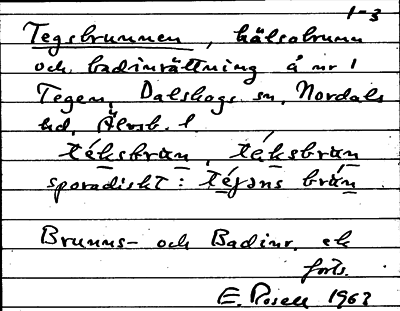 1-3
Tegsbrunnen, hälsobrunn
och badinrättning å nr 1
Tegen, Dalskogs sn, Nordals
hd, Älvsb. l.
téksbrun, téksbrun
sporadiskt: téjəns brún
Brunns- och Badinr. ek
forts.
E. Rosell 1963